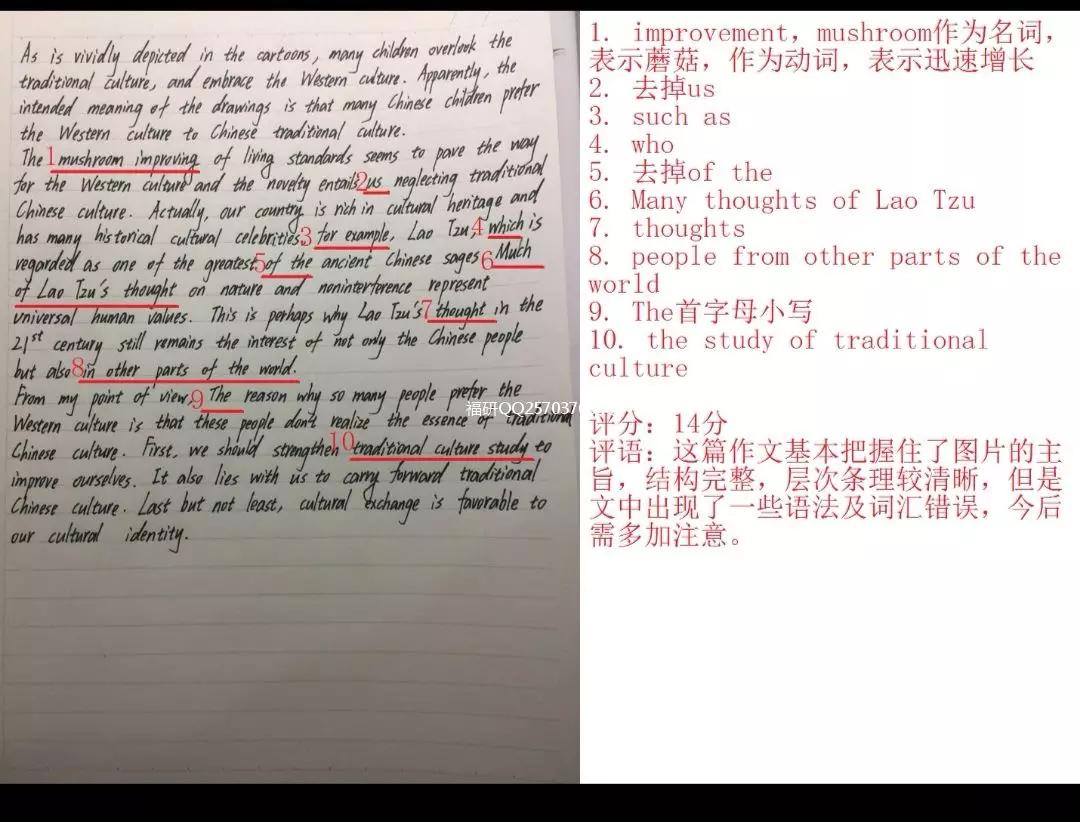 As is vividly depicted in the cartoons, many children overlook the
traditional culture, and embrace the Western culture. Apparently, the
intended meaning of the drawings is that many Chinese children prefer
the Western culture to Chinese traditional culture.
The 1 mushroom improving of living standards seems to pave the way
for the Western culture and the novelty entails 2 us neglecting traditional
Chinese culture. Actually, our country is rich in cultural heritage and
has many historical cultural celebrities, 3 for example, Lao Tzu, 4 which is
regarded as one of the greatest 5 of the ancient Chinese sages. 6 Much
of Lao Tzu's thought on nature and noninterference represent
universal human values. This is perhaps why Lao Tzu's 7 thought in the
21st century still remains the interest of not only the Chinese people
but also 8 in other parts of the world.
From my point of view, 9 The reason why so many people prefer the
福研QQ257037
Western culture is that these people don't realize the essence of traditional
Chinese culture. First, we should strengthen 10 traditional culture study to
improve ourselves. It also lies with us to carry forward traditional
Chinese culture. Last but not least, cultural exchange is favorable to
our cultural identity.
1. improvement，mushroom作为名词，
表示蘑菇，作为动词，表示迅速增长
2. 去掉us
3. such as
4. who
5. 去掉of the
6. Many thoughts of Lao Tzu
7. thoughts
8. people from other parts of the
world
9. The首字母小写
10. the study of traditional
culture
评分：14分
评语：这篇作文基本把握住了图片的主
旨，结构完整，层次条理较清晰，但是
文中出现了一些语法及词汇错误，今后
需多加注意。